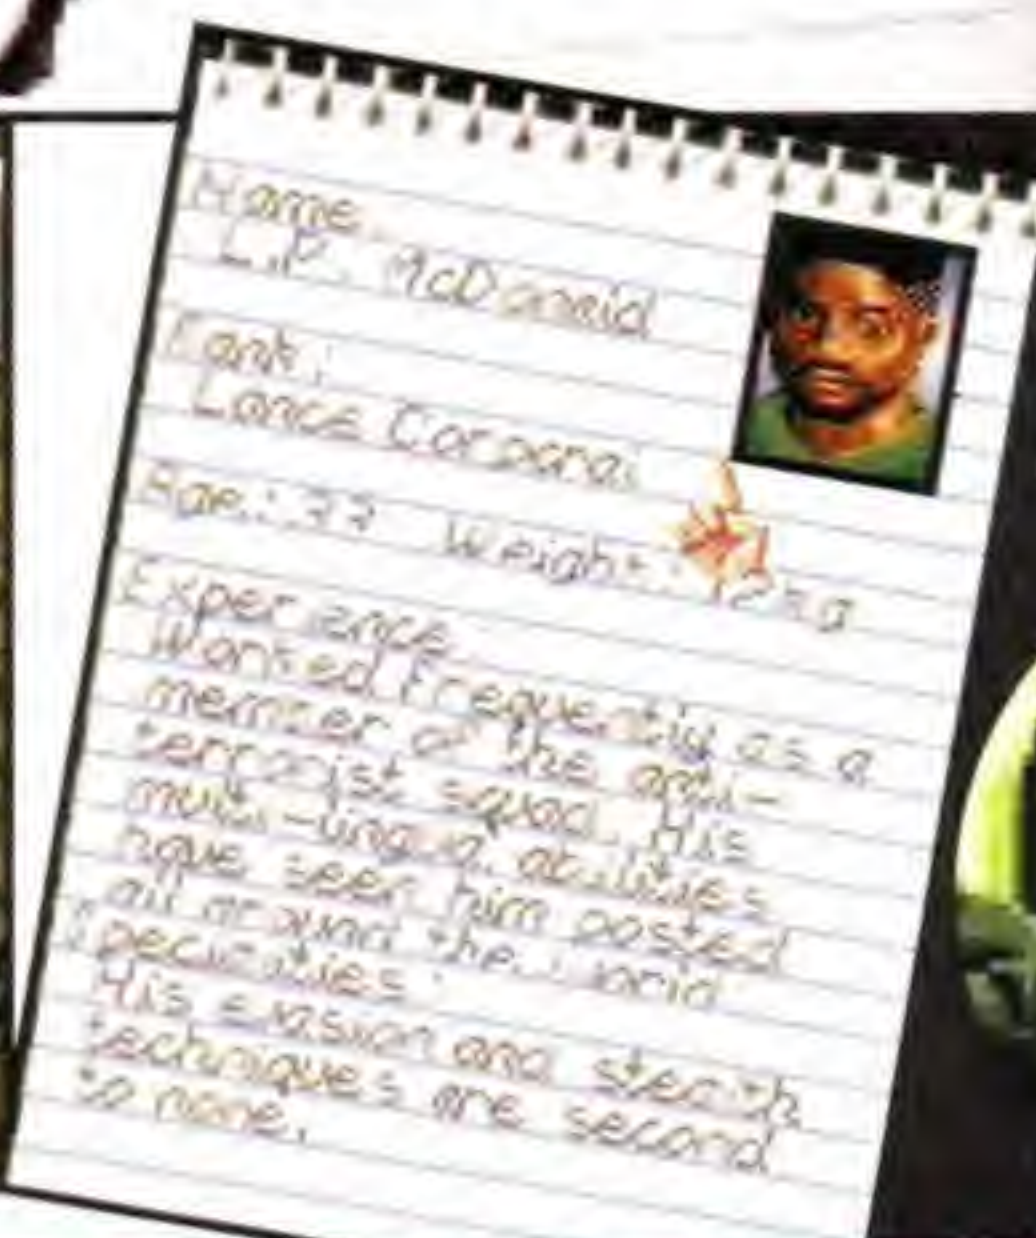 Name
McDonald
Rank:
Lance Corporal
Age: Weight:
Experience
Worked frequently as a
member of the anti-
terrorist squad. His
multi-lingual abilities
have seen him posted
all around the world
Specialties:
His evasion and stealth
techniques are second
to none.